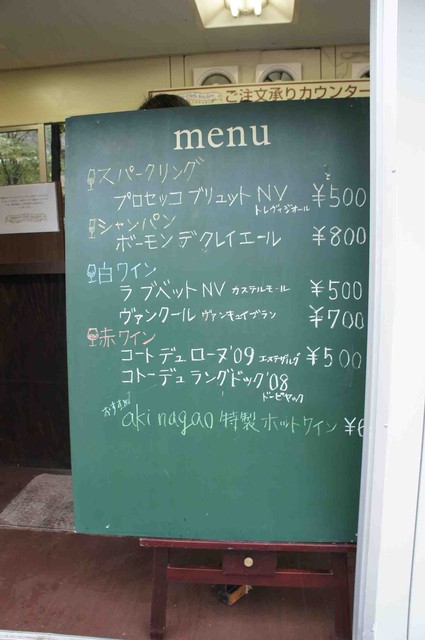 ご注文承りカウンター
menu
スパークリング
プロセッコ ブリュット NV ¥500
トレヴィジオール
シャンパン
ボーモン デ クレイエール ¥800
白ワイン
ラ ブベット NV カステルモール ¥500
ヴァンクール ヴァンキュイブラン ¥700
赤ワイン
コート デュ ローヌ'09 エステザルグ ¥500
コトー デュ ラングドック'08
ドーピヤック
おすすめ
aki nagao 特製 ホットワイン ¥6